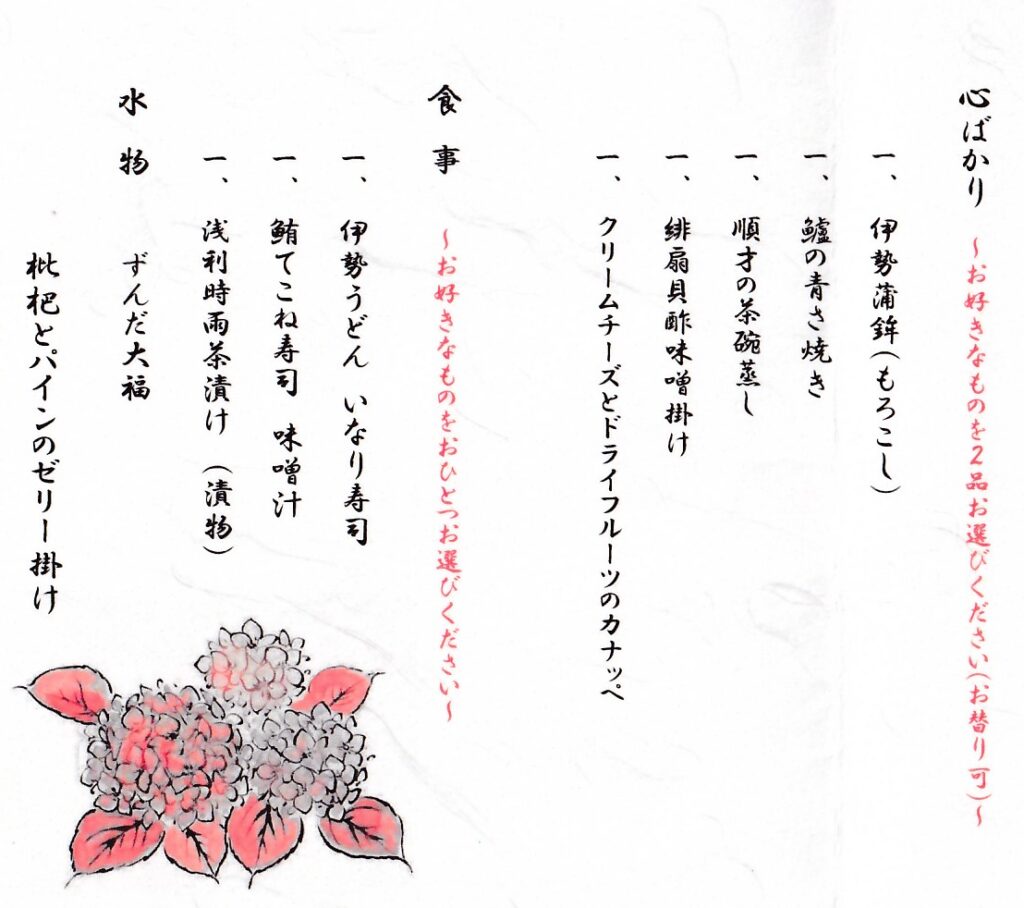 心ばかり ~お好きなものを2品お選びください(お替り可)~
一、 伊勢蒲鉾(もろこし)
一、 鱸の青さ焼き
一、 順才の茶碗蒸し
一、 緋扇貝酢味噌掛け
一、 クリームチーズとドライフルーツのカナッペ
食事 ~お好きなものをおひとつお選びください~
一、 伊勢うどん いなり寿司
一、 鮪てこね寿司 味噌汁
一、 浅利時雨茶漬け (漬物)
水物 ずんだ大福
枇杷とパインのゼリー掛け